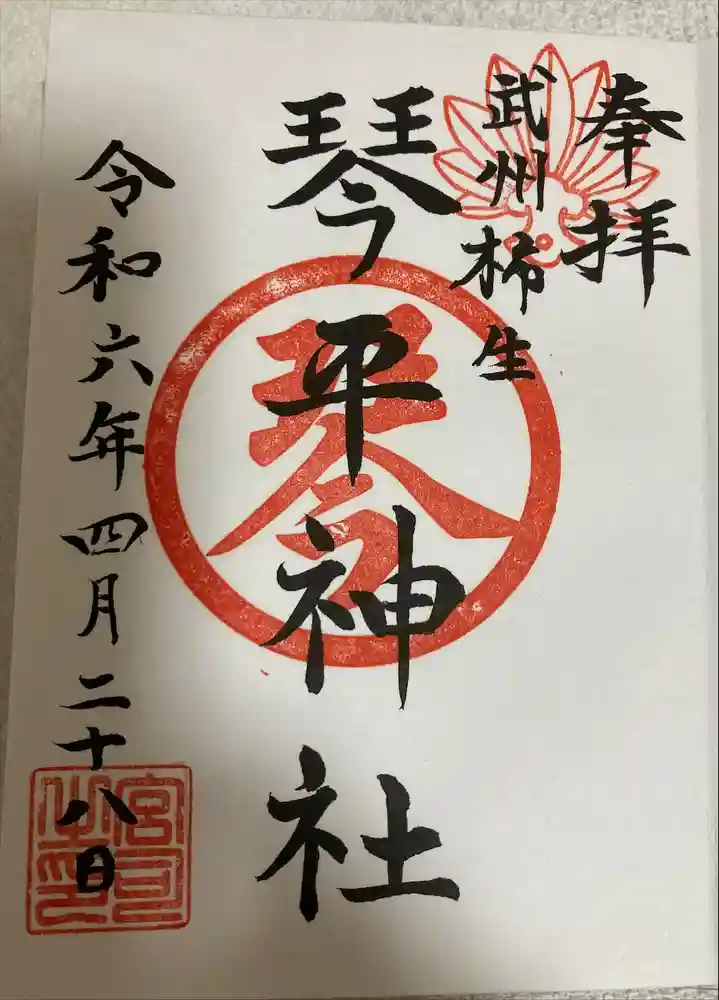 奉拝
武州柿生
琴平神社
琴
令和六年四月二十八日